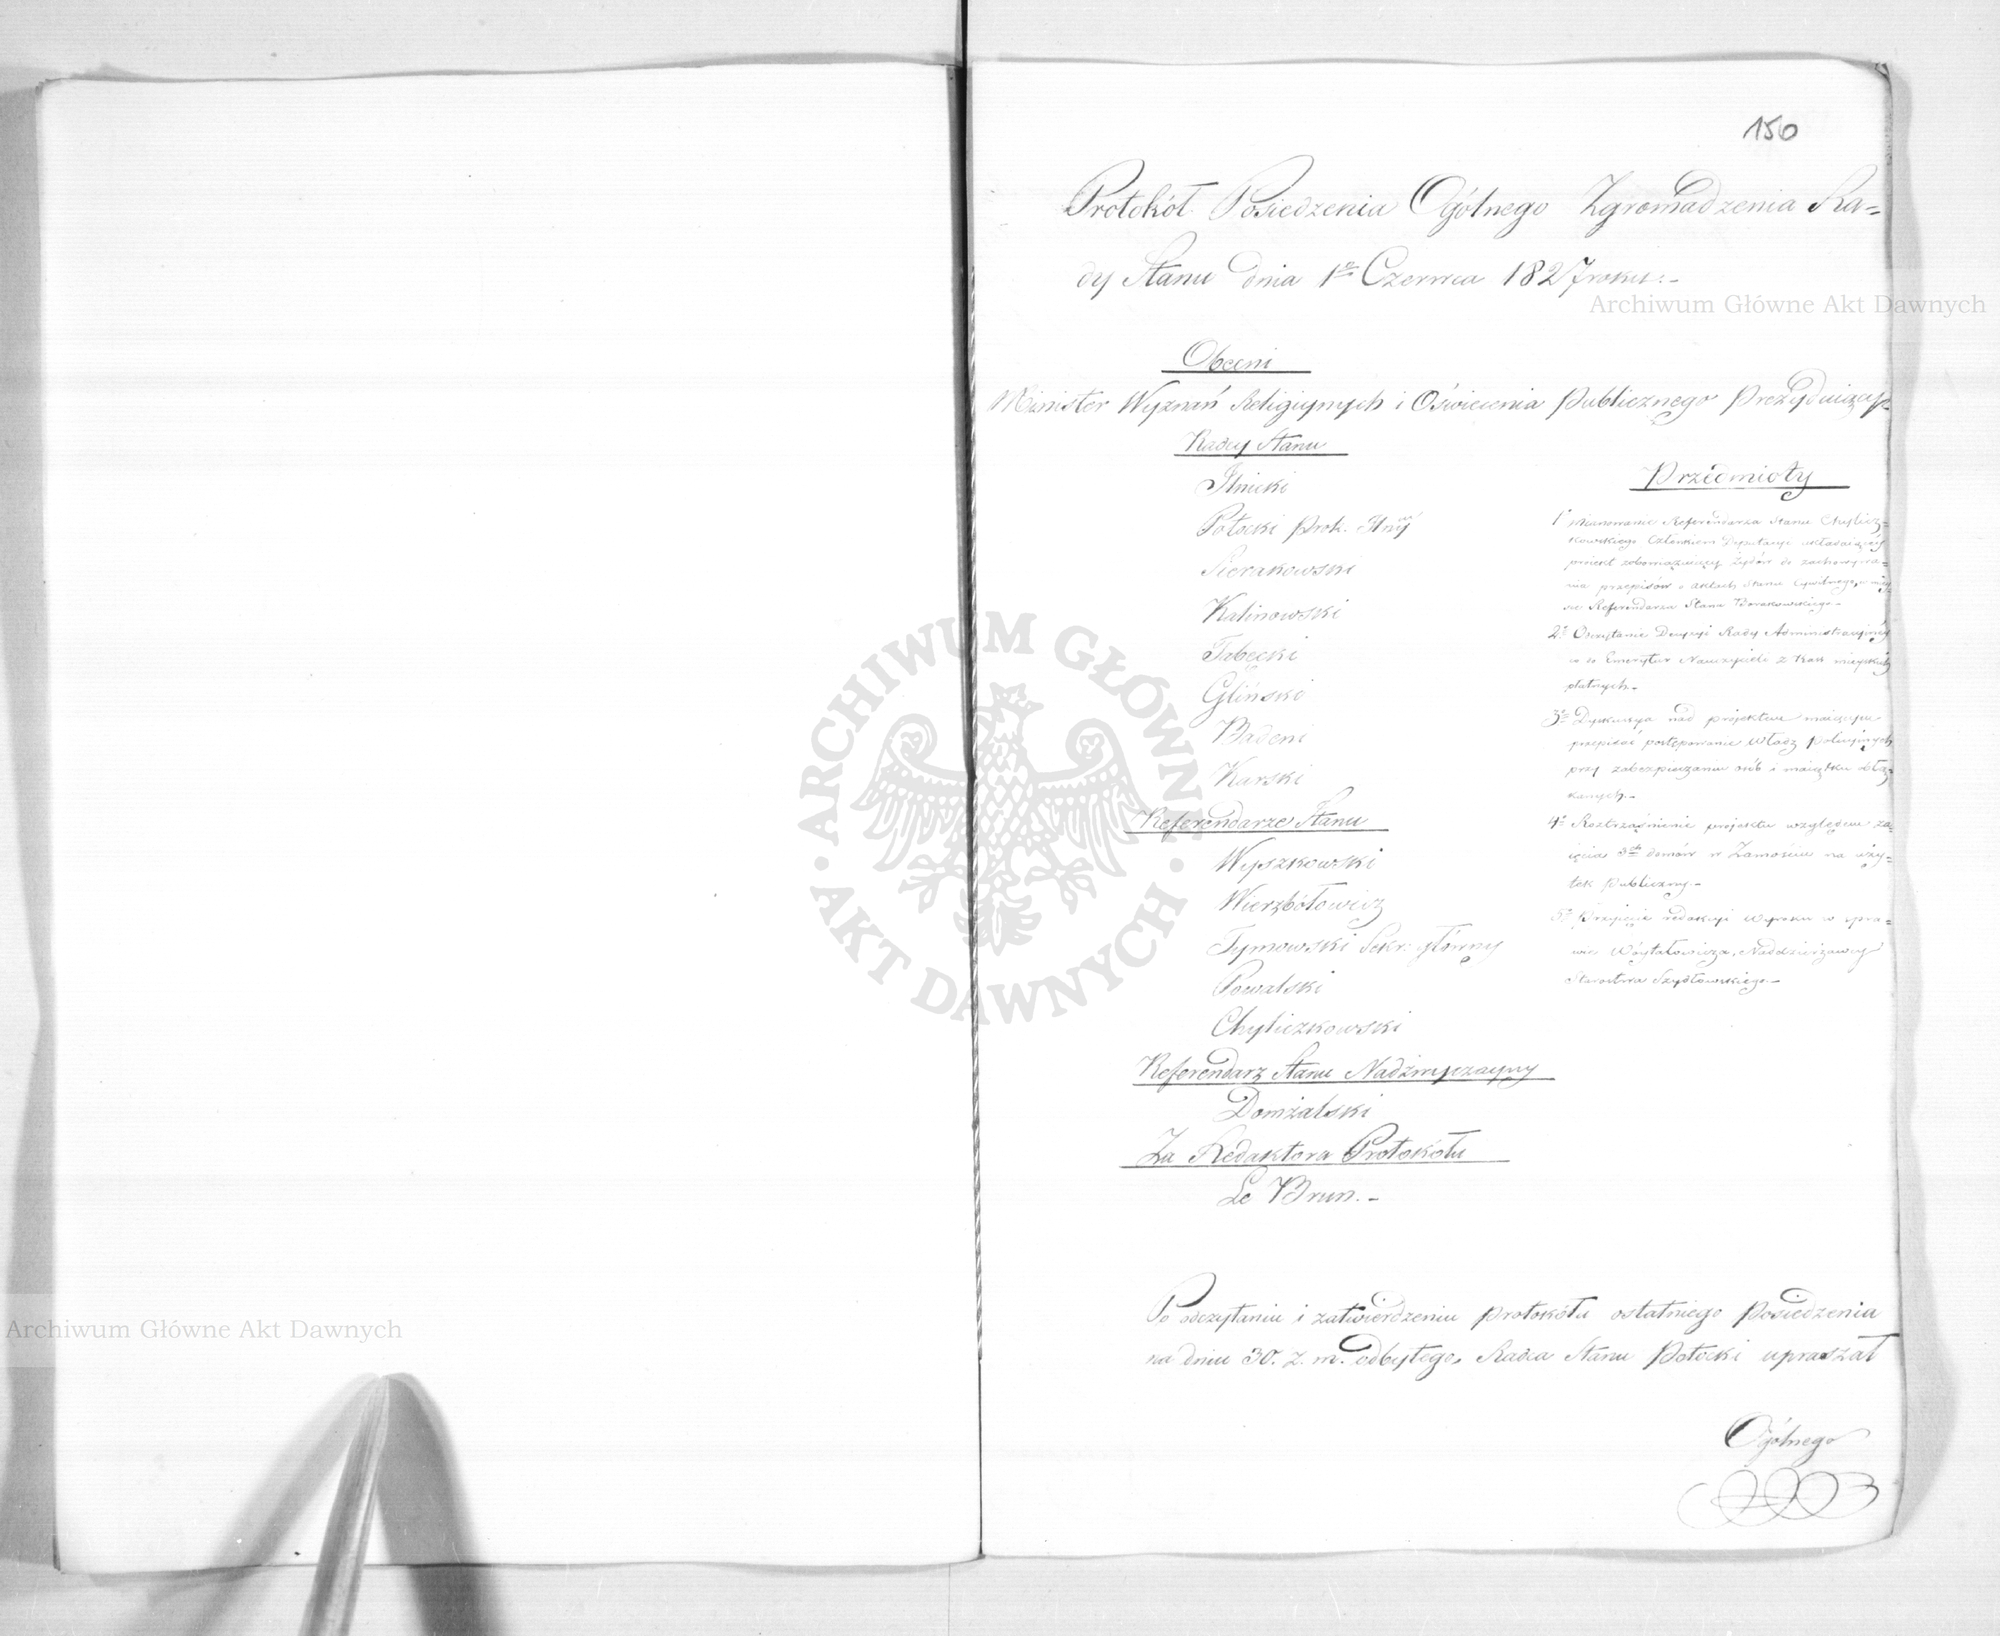 150
Protokół Posiedzenia Ogólnego Zgromadzenia Ra=
dy Stanu dnia 1go Czerwca 1827 roku:-
Obecni
Minister Wyznań Religijnych i Oświecenia Publicznego Prezydujący
Radcy Stanu
Ilnicki
Potocki Prok. 
Sierakowski
Kalinowski
Tabęcki
Gliński
Badeni
Karski
Referendarze Stanu
Wyszkowski
Wierzbołowicz
Tymowski Sekr: główny
Powalski
Chyliczkowski
Referendarz Stanu Nadzwyczayny
Domżalski
Za Redaktora Protokółu
Le Brun.-
Przedmioty
1° Mianowanie Referendarza Stanu Chylicz=
kowskiego Członkiem Deputacyi układaiącéy
proiekt zobowiązuiący Żydów do zachowywa=
nia przepisów o aktach Stanu Cywilnego, w miey
sce Referendarza Stanu Borakowskiego.-
2° Odczytanie Decyzyi Rady Administracyinéy
co do Emerytur Nauczycieli z kass mieyskich
płatnych.-
3° Dyskussya nad projektem maiącym
przepisać postępowanie Władz Policyinych
przy zabezpieczaniu osób i maiątku obłą=
kanych.-
4° Roztrząśnienie projektu względem za=
ięcia 3ch domów w Zamościu na uży=
tek publiczny.-
5° Przyięcie redakcyi Wyroku w spra=
wie Wóytałowicza, Naddzierżawcy
Starostwa Szydłowskiego.-
Po odczytaniu i zatwierdzeniu Protokółu ostatniego Posiedzenia
na dniu 30. z. m. odbytego, Radca Stanu Potocki upraszał
Ogólnego
Archiwum Główne Akt Dawnych
ARCHIWUM GŁÓWNE · AKT DAWNYCH ·
Archiwum Główne Akt Dawnych